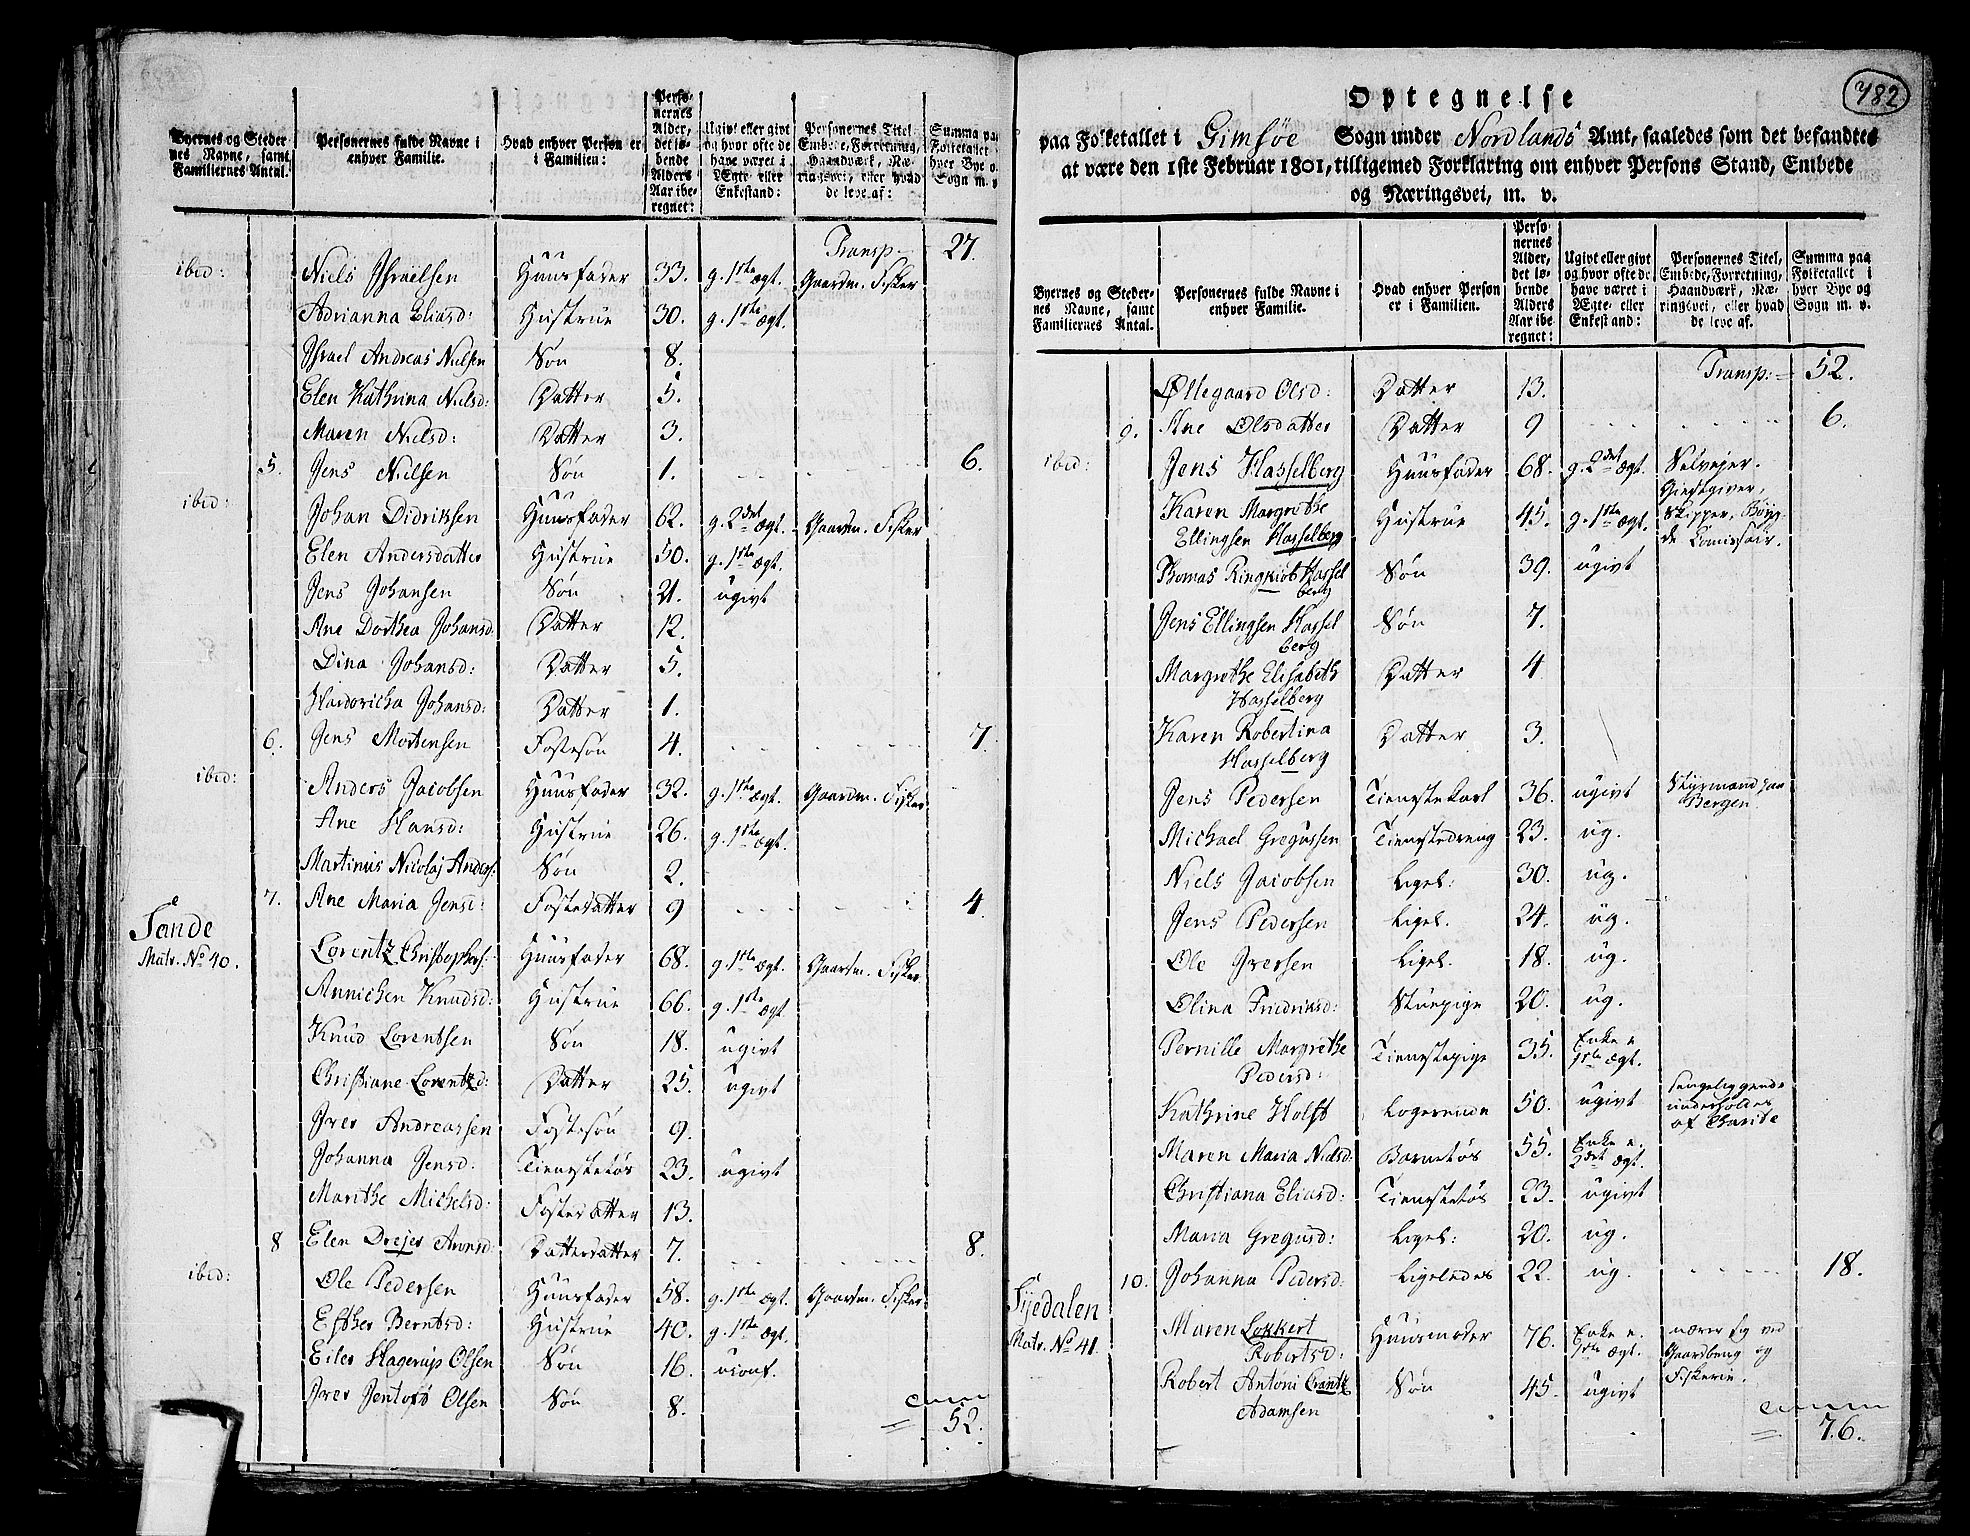 Byernes og Steder
nes Navne, samt
Familiernes Antal.
Personernes fulde Navne i
enhver Familie.
Hvad enhver Person er
i Familien:
Perso-
nernes
Alder,
det lø-
bende
Alders
Aar ibe-
regnet:
Ugivt eller givt
og hvor ofte de
have været i
Ægte- eller
Enkestand:
Personernes Titel
Embede, Forretning,
Haandværk, Næ-
ringsvei, eller hvad
de leve af:
Summa paa
Folketallet
hver Bye o
Sogn m. v
Transp: 27.
ibid: Niels Jsraelsen Huusfader 33. g. 1ste ægt. Gaardm. Fisker
Adrianna Eliasd: Hustrue 30. g. 1ste ægt.
Jsrael Andreas Nielsen Søn 8.
Elen Kathrina Nielsd: Datter 5.
Maren Nielsd: Datter 3.
5. Jens Nielsen Søn 1. 6.
ibid: Johan Didriksen Huusfader 62. g. 2det ægt. Gaardm. Fisker
Elen Andersdatter Hustrue 50. g. 1ste ægt.
Jens Johansen Søn 21. ugivt
Ane Dorthea Johansd: Datter 12.
Dina Johansd: Datter 5.
Johansd: Datter 1.
6. Jens Mortensen Fostesøn 4. 7.
ibid: Anders Jacobsen Huusfader 32. g. 1ste ægt. Gaardm. Fisker
Ane Hansd: Hustrue 26. g. 1ste ægt.
Martinus Nicolaj Anders: Søn 2.
7. Ane Maria Jensd: Fostedatter 9 4.
Sande
Matr. No 40. Lorentz Christophers: Huusfader 68. g. 1ste ægt. Gaardm. Fisker
Annichen Knudsd: Hustrue 66. g. 1ste ægt.
Knud Lorentsen Søn 18. ugivt
Christiane Lorentzd: Datter 25. ugivt
Jver Andreassen Fostesøn 9.
Johanna Jensd: Tienestetøs 23. ugivt
Marithe Michelsd: Fostedatter 13.
8 Elen Drejer Arnsd: Datterdatter 7. 8.
ibid: Ole Pedersen Huusfader 58. g. 1ste ægt. Gaardm. Fisker
Esther Berntsd: Hustrue 40. g. 1ste ægt.
Eiler Hagerup Olsen Søn 16.
Jver Jentoft Olsen Søn 8.
52.
782
Optegnelse
paa Folketallet i Gimsøe Sogn under Nordlands Amt, saaledes som det befandtes
at være den 1ste Februar 1801, tilligemed Forklaring om enhver Persons Stand, Embede
og Næringsvei, m. v.
Byernes og Steder-
nes Navne, samt
Familiernes Antal.
Personernes fulde Navne i
enhver Familie.
Hvad enhver Person
er i Familien.
Perso-
nernes
Alder,
det lø-
bende
Alders
Aar ibe-
regnet:
Ugivt eller givt
og hvor ofte de
have været i
Ægte- eller
Enkestand:
Personernes Titel,
Embede, Forretning,
Haandværk, Næ-
ringsvei, eller hvad
de leve af.
Summa paa
Folketallet i
hver Bye og
Sogn m. v.
Transp: 52.
Øllegaard Olsd: Datter 13.
9. Ane Olsdatter Datter 9 6.
ibid: Jens Hasselberg Huusfader 68. g. 2det ægt. Selvejer.
Giestgiver,
Karen Margrethe Hustrue 45. g. 1ste ægt. Skipper, Bøyg-
Ellingsen Hasselberg de Comissair.
Thomas Ringkiøb Hassel Søn 39. ugivt
berg
Jens Ellingsen Hassel Søn 7.
berg
Margrethe Elisabeth Datter 4
Hasselberg
Karen Robertina Datter 3.
Hasselberg
Jens Pedersen Tienestekarl 36. ugivt Styrmand paa
Bergen
Michael Gregussen Tienestedreng 23. ug.
Niels Jacobsen Ligel: 30. ug.
Jens Pedersen Ligel. 24. ug.
Ole Jversen Ligel. 18. ug.
Olina Fridriksd: Stuepige 20. ug.
Pernille Margrethe Tienestepige 35. Enke e
Pedersd: 1ste ægt.
Kathrine Holst Logerende 50. ugivt Sengeliggende
underholdes
af Charite
Maren Maria Nielsd: Barnetøs 55. Enke e.
2det ægt.
Christiana Eliasd: Tienestetøs 23. ugivt
Maria Gregusd: Ligel: 20. ug.
10. Johanna Pedersd: Ligeledes 22. ug. 18.
Syedalen
Matr. No 41. Maren Lokkert Huusmoder 76. Enke e. nærer sig ved
Robertsd: 1ste ægt. Gaardbrug og
Fiskerie.
Robert Antoni Crantz Søn 45. ugivt
Adamsen
76.